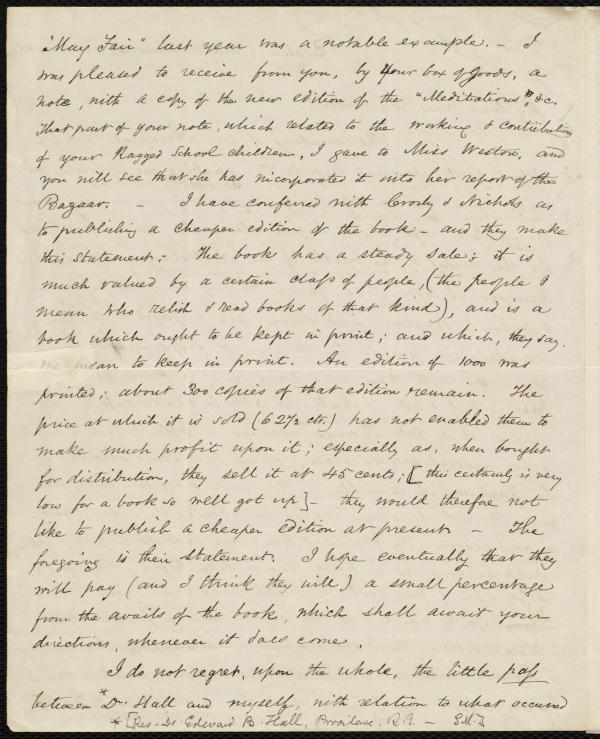 "May Fair" last year was a notable example. – I
was pleased to receive from you, by your box of goods, a
note, with a copy of the new edition of the "Meditations", &c.
That part of your note, which related to the working & contribution
of your Ragged School children, I gave to Miss Weston, and
you will see that she has incorporated it into her report of the
Bazaar. – I have conferred with Crosby & Nichols as
to publishing a cheaper edition of the book – and they make
this statement: – The book has a steady sale; it is
much valued by a certain class of people, (the people I
mean who relish & read books of that kind), and is a
book which ought to be kept in print; and which, they say,
we mean to keep in print. An edition of 1000 was
printed; about 300 copies of that edition remain. The
price at which it is sold (62½ cts.) has not enabled them to
make much profit upon it; especially as, when bought
for distribution, they sell it at 45 cents; [this certainly is very
low for a book so well got up] – they would therefore not
like to publish a cheaper edition at present – The
foregoing is their statement. I hope eventually that they
will pay (and I think they will) a small percentage
from the avails of the book, which shall await your
directions, whenever it does come.
I do not regret, upon the whole, the little pass
between *Dr. Hall and myself, with relation to what occurred
* [Rev. Dr. Edward B. Hall, Providence, R.I. –